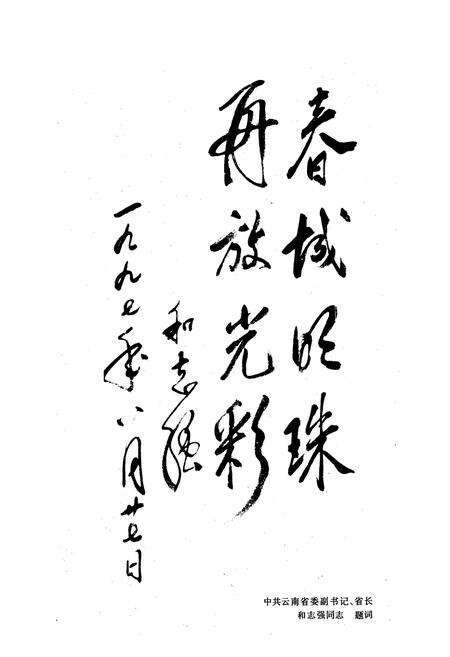 春城明珠
再放光彩
和志强
一九九七年八月廿七日
中共云南省委副书记、省长
和志强同志　题词